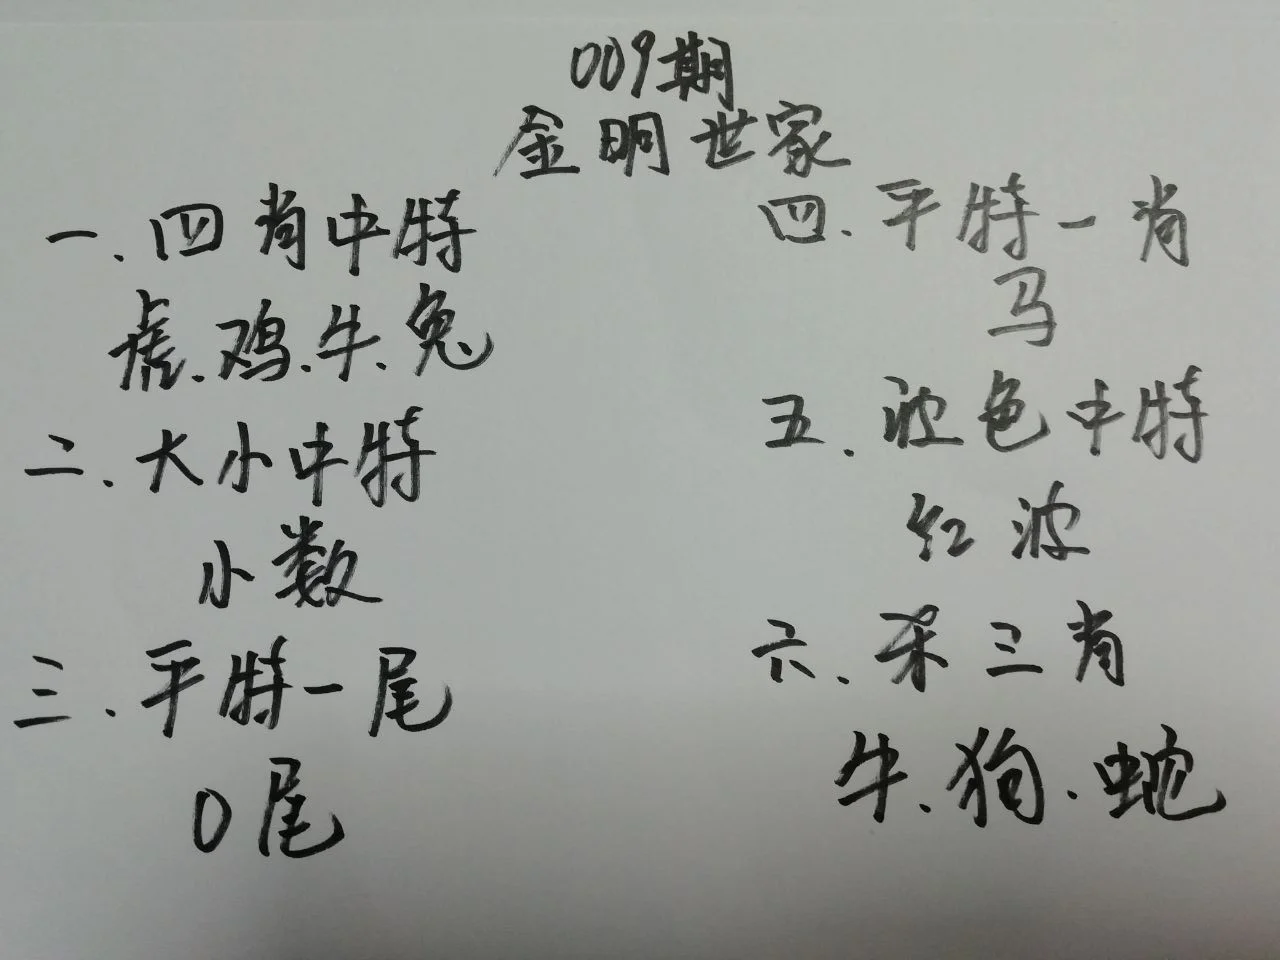 009期
金明世家
一.四肖中特
虎.鸡.牛.兔
二.大小中特
小数
三.平特一尾
0尾
四.平特一肖
马
五.波色中特
红波
六.杀三肖
牛.狗.蛇